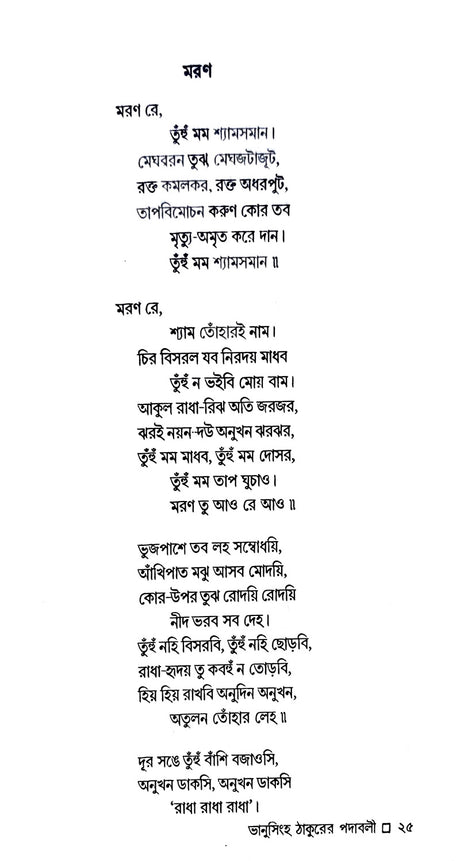 মরণ
মরণ রে,
তুঁহুঁ মম শ্যামসমান।
মেঘবরন তুঝ, মেঘজটাজূট,
রক্ত কমলকর, রক্ত অধরপুট,
তাপবিমোচন করুণ কোর তব
মৃত্যু-অমৃত করে দান।
তুঁহুঁ মম শ্যামসমান॥
মরণ রে,
শ্যাম তোঁহারই নাম।
চির বিসরল যব নিরদয় মাধব
তুঁহুঁ ন ভইবি মোয় বাম।
আকুল রাধা-রিঝ অতি জরজর,
ঝরই নয়ন-দউ অনুখন ঝরঝর,
তুঁহুঁ মম মাধব, তুঁহুঁ মম দোসর,
তুঁহুঁ মম তাপ ঘুচাও।
মরণ তু আও রে আও॥
ভুজপাশে তব লহ সম্বোধয়ি,
আঁখিপাত মঝু আসব মোদয়ি,
কোর-উপর তুঝ রোদয়ি রোদয়ি
নীদ ভরব সব দেহ।
তুঁহুঁ নহি বিসরবি, তুঁহুঁ নহি ছোড়বি,
রাধা-হৃদয় তু কবহুঁ ন তোড়বি,
হিয় হিয় রাখবি অনুদিন অনুখন,
অতুলন তোঁহার লেহ॥
দূর সঙে তুঁহুঁ বাঁশি বজাওসি,
অনুখন ডাকসি, অনুখন ডাকসি
‘রাধা রাধা রাধা’।
ভানুসিংহ ঠাকুরের পদাবলী □ ২৫